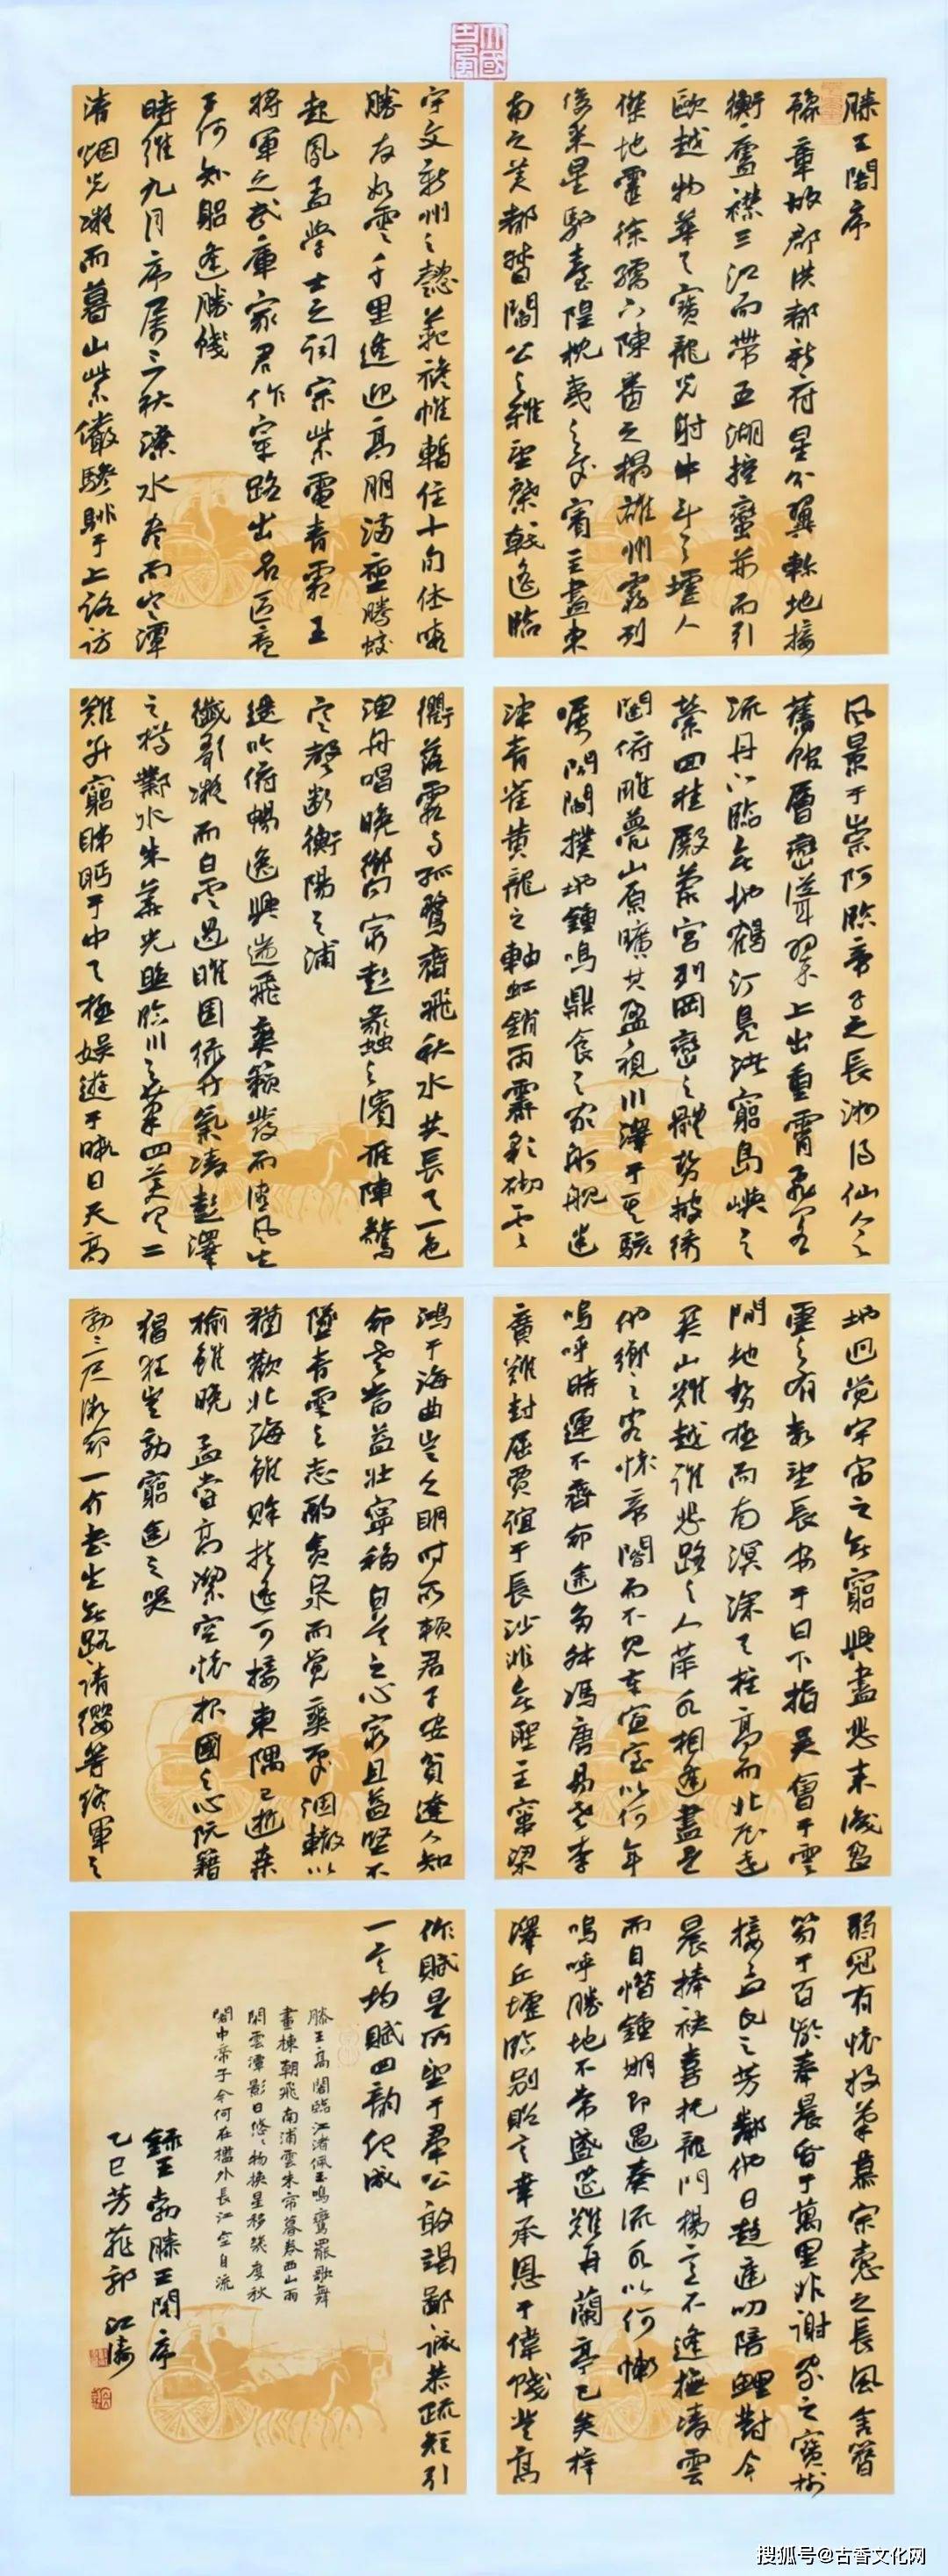 滕王閣序
豫章故郡洪都新府星分翼軫地接
衡廬襟三江而帶五湖控蠻荊而引
甌越物華天寶龍光射牛斗之墟人
傑地靈徐孺下陳蕃之榻雄州霧列
俊采星馳臺隍枕夷之交賓主盡東
南之美都督閻公之雅望棨戟遙臨
宇文新州之懿范襜帷暫住十旬休暇
勝友如雲千里逢迎高朋滿座騰蛟
起鳳孟學士之詞宗紫電青霜王
將軍之武庫家君作宰路出名區童
子何知躬逢勝餞
時維九月序屬三秋潦水盡而寒潭
清烟光凝而暮山紫儼驂騑于上路訪
風景于崇阿臨帝子之長洲得仙人之
舊館層巒聳翠上出重霄飛閣
流丹下臨無地鶴汀鳧渚窮島嶼之
縈回桂殿蘭宮列岡巒之體勢披繡
闥俯雕甍山原曠其盈視川澤于其駭
矚閭閻撲地鐘鳴鼎食之家舸艦迷
津青雀黃龍之軸虹銷雨霽彩徹雲
衢落霞与孤鶩齊飛秋水共長天一色
漁舟唱晚響窮彭蠡之濱雁陣驚
寒聲斷衡陽之浦
遙吟俯暢逸興遄飛爽籟發而清風生
纖歌凝而白雲遏睢園綠竹氣凌彭澤
之樽鄴水朱華光照臨川之筆四美具二
難并窮睇眄于中天極娛遊于暇日天高
地迥覺宇宙之無窮興盡悲來識盈
虛之有數望長安于日下指吳會于雲
間地勢極而南溟深天柱高而北辰遠
關山難越誰悲路之人萍水相逢盡是
他鄉之客懷帝閽而不見奉宣室以何年
嗚呼時運不齊命途多舛馮唐易老李
廣難封屈賈誼于長沙非無聖主竄梁
鴻于海曲豈乏明時所賴君子安貧達人知
命老當益壯寧移白首之心窮且益堅不
墜青雲之志酌貪泉而覺爽處涸轍以
猶歡北海雖賒扶遙可接東隅已逝桑
榆雖晚孟嘗高潔空懷報國之心阮籍
猖狂豈効窮途之哭
勃三尺微命一介書生無路請纓等終軍之
弱冠有懷投筆慕宗愨之長風舍簪
笏于百齡奉晨昏于萬里非謝家之寶樹
接孟氏之芳鄰他日趨庭叨陪鯉對今
晨捧袂喜托龍門楊意不逢撫凌雲
而自惜鍾期即遇奏流水以何慚
嗚呼勝地不常盛筵難再蘭亭已矣梓
澤丘墟臨別贈言幸承恩于偉餞登高
作賦是所望于羣公敢竭鄙誠恭疏短引
一言均賦四韻俱成
滕王高閣臨江渚佩玉鳴鸞罷歌舞
畫棟朝飛南浦雲朱帘暮卷西山雨
閑雲潭影日悠悠物換星移幾度秋
閣中帝子今何在檻外長江空自流
錄王勃滕王閣序
乙巳芳菲郭江濤
搜狐号@古香文化网